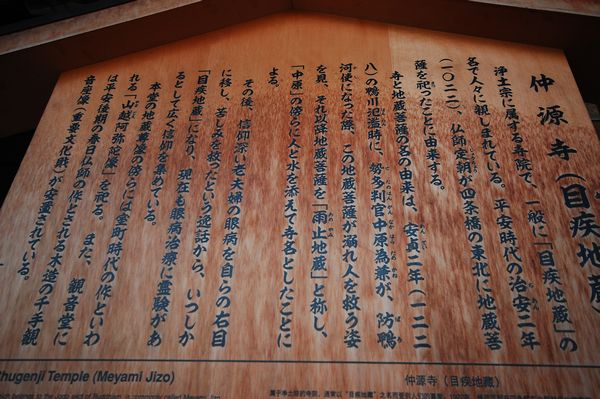 仲源寺(目疾地蔵)
浄土宗に属する寺院で、一般に「目疾地蔵」の
名で人々に親しまれている。平安時代の治安二年
(一〇二二)、仏師定朝が四条橋の東北に地蔵菩
薩を祀ったことに由来する。
寺と地蔵菩薩の名の由来は、安貞二年(一二二
八)の鴨川氾濫時に、勢多判官中原為兼が、防鴨
河使になった際、この地蔵菩薩が溺れ人を救う姿
を見、それ以降地蔵菩薩を「雨止地蔵」と称し、
「中原」の傍らに人と水を添えて寺名としたことに
よる。
その後、信仰深い老夫婦の眼病を自らの右目
に移し、苦しみを救ったという逸話から、いつしか
「目疾地蔵」になり、現在も眼病治療に霊験があ
るとして広く信仰を集めている。
本堂の地蔵尊像の傍らには室町時代の作といわ
れる「山越阿弥陀像」を祀る。また、観音堂に
は平安後期の春日仏師の作とされる木造の千手観
音座像(重要文化財)が安置されている。
Chugenji Temple (Meyami Jizo)
仲源寺(目疾地藏)